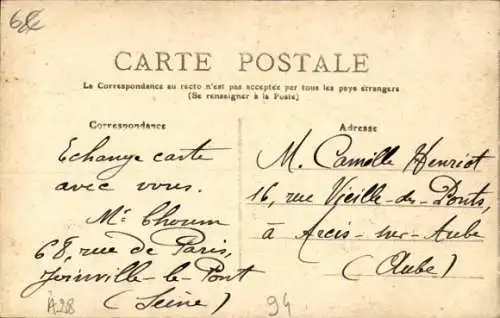 CARTE POSTALE
La Correspondance au recto n'est pas acceptée par tous les pays étrangers
(Se renseigner à la Poste)
Correspondance
Echange carte
avec vous.
Mr Choum
68, rue de Paris,
Joinville-le-Pont
(Seine)
A28
Adresse
M. Camille Henriot
16, rue Vieille-des-Ponts,
à Arcis-sur-Aube
(Aube)
94